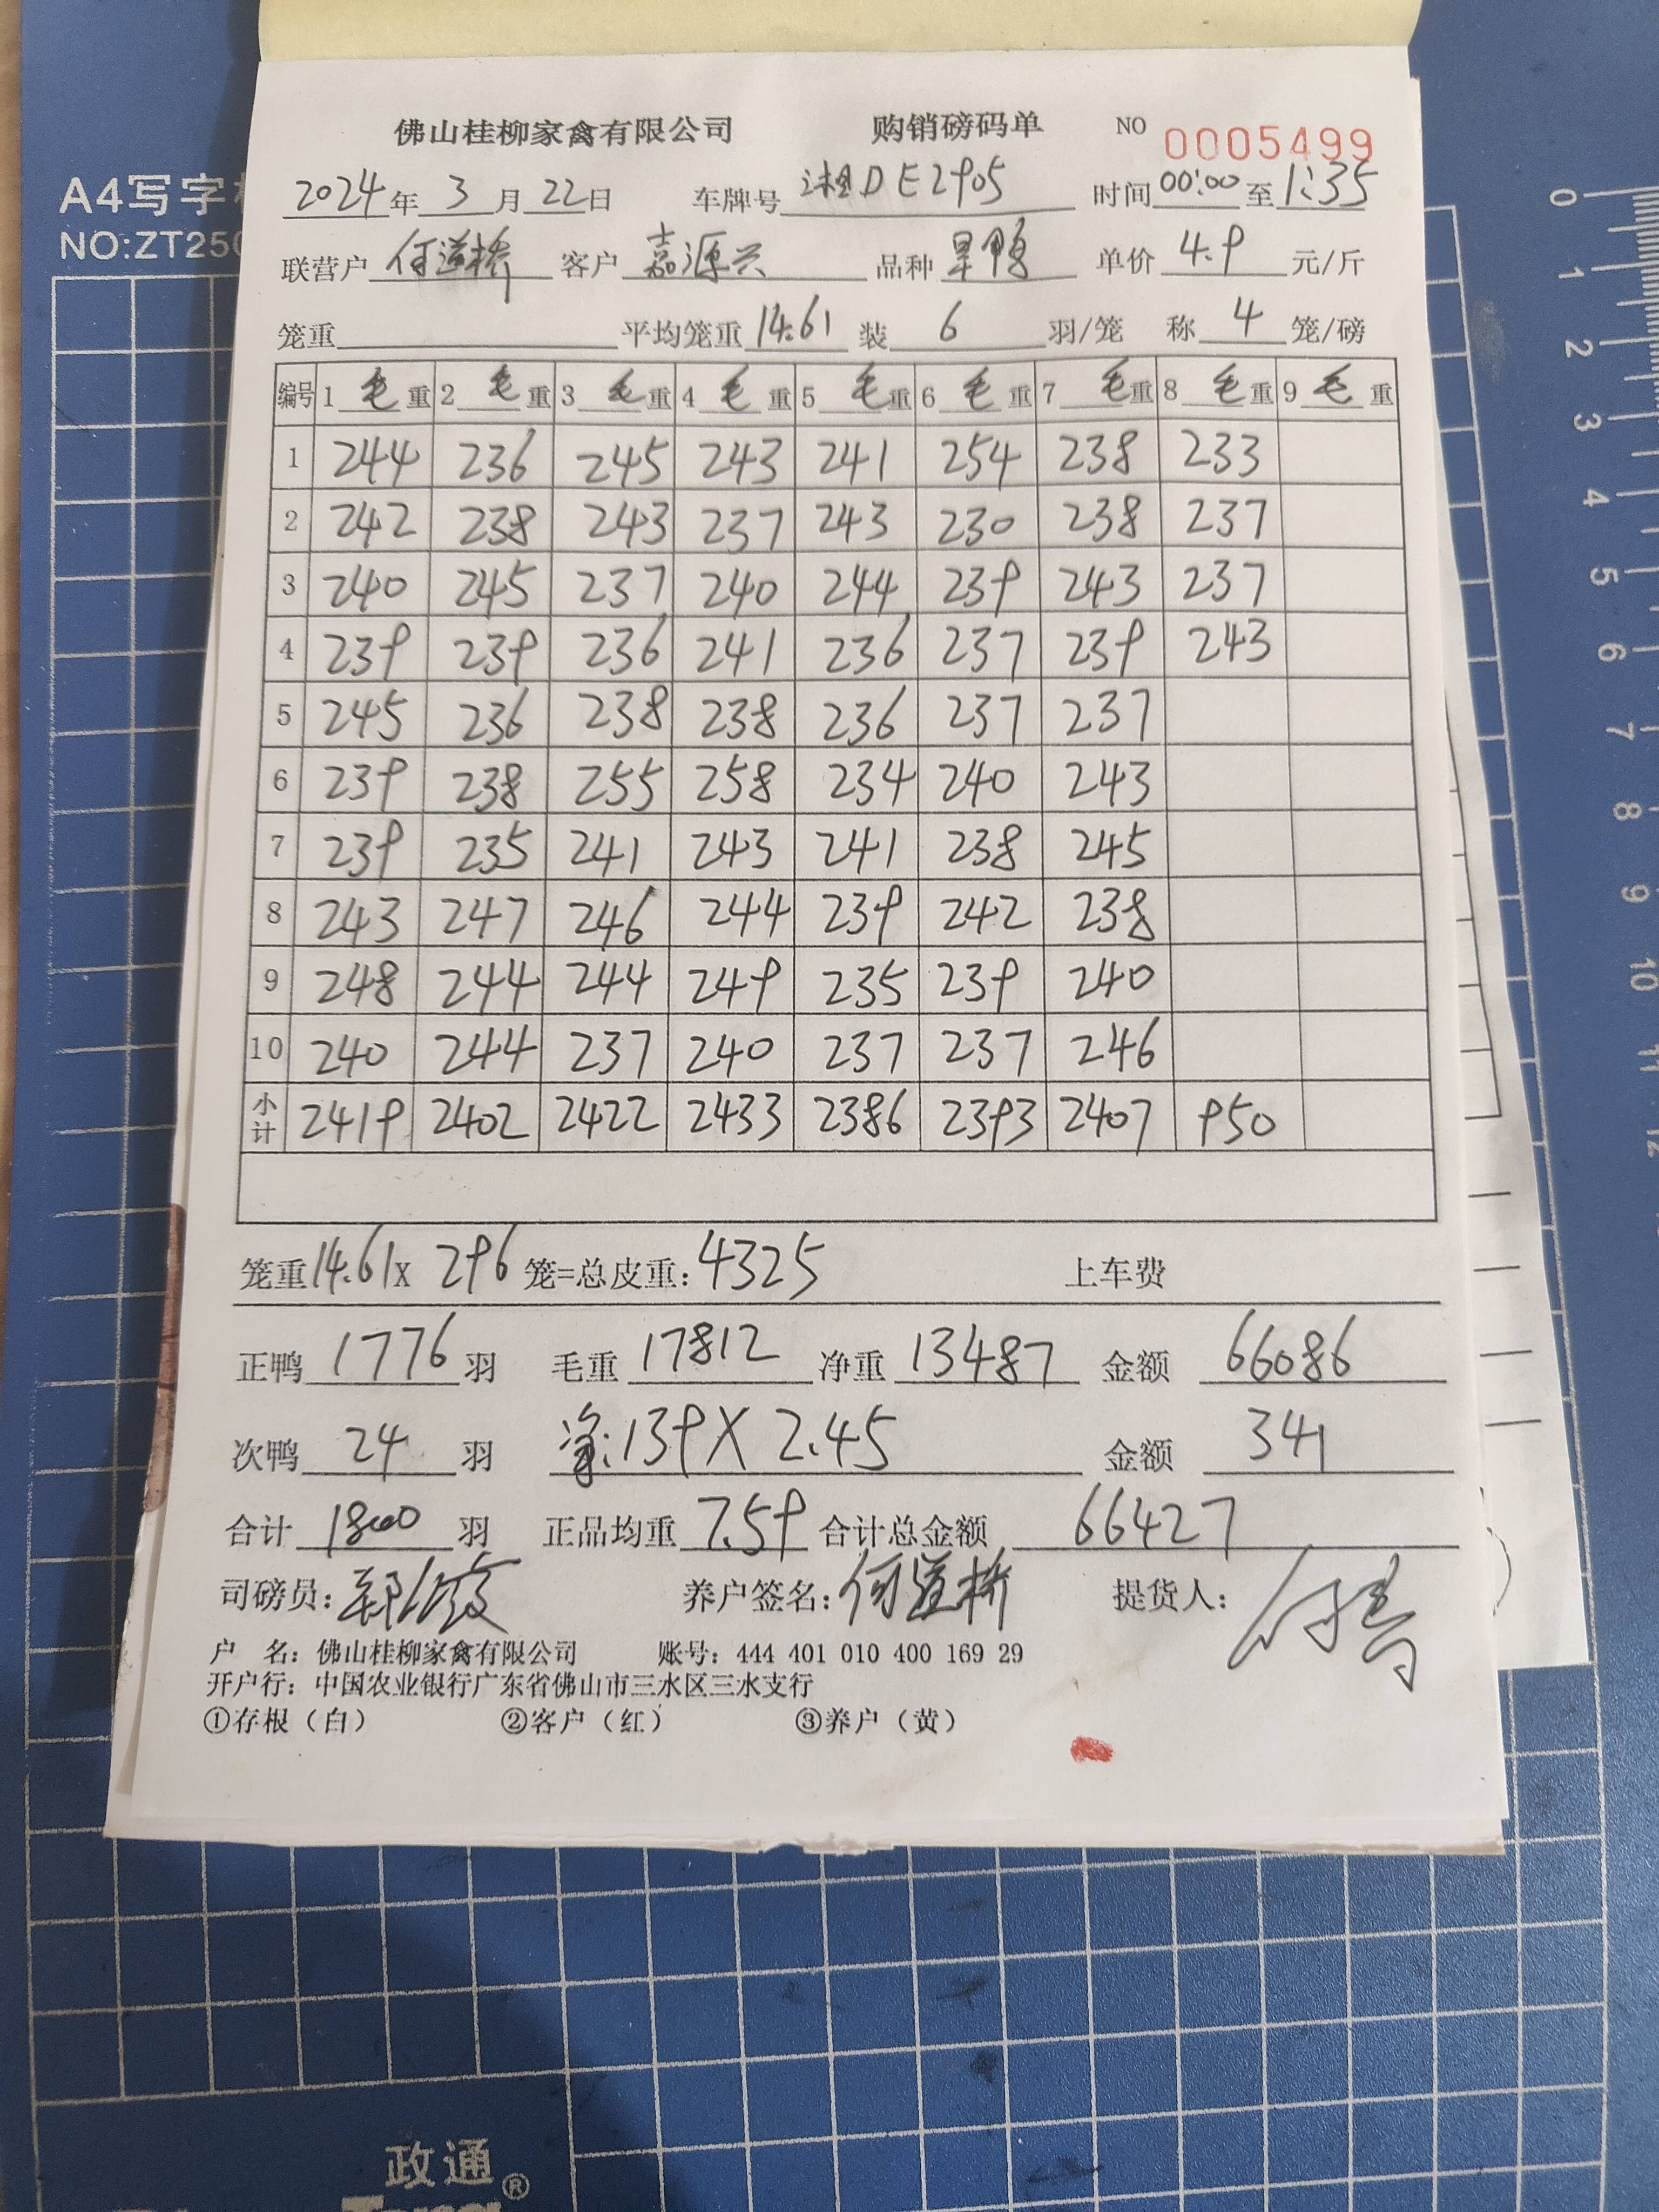 A4写字
NO:ZT250
佛山桂柳家禽有限公司 购销磅码单 NO 0005499
2024年 3 月 22日 车牌号 湘DE2905 时间 00:00 至 1:35
联营户 何道桥 客户 嘉源兴 品种 旱鸭 单价 4.9 元/斤
笼重 平均笼重 14.61 装 6 羽/笼 称 4 笼/磅
编号 1 毛 重 2 毛 重 3 毛 重 4 毛 重 5 毛 重 6 毛 重 7 毛 重 8 毛 重 9 毛 重
1 244 236 245 243 241 254 238 233
2 242 238 243 237 243 230 238 237
3 240 245 237 240 244 239 243 237
4 239 239 236 241 236 237 239 243
5 245 236 238 238 236 237 237
6 239 238 255 258 234 240 243
7 239 235 241 243 241 238 245
8 243 247 246 244 239 242 238
9 248 244 244 249 235 239 240
10 240 244 237 240 237 237 246
小计 2419 2402 2422 2433 2386 2393 2407 950
笼重14.61x 296 笼=总皮重: 4325 上车费
正鸭 1776 羽 毛重 17812 净重 13487 金额 66086
次鸭 24 羽 净:139X2.45 金额 341
合计 1800 羽 正品均重 7.59 合计总金额 66427
司磅员: 养户签名: 何道桥 提货人:
户 名: 佛山桂柳家禽有限公司 账号: 444 401 010 400 169 29
开户行: 中国农业银行广东省佛山市三水区三水支行
①存根（白） ②客户（红） ③养户（黄）
0 1 2 3 4 5 6 7 8 9 10 11 12
政通®